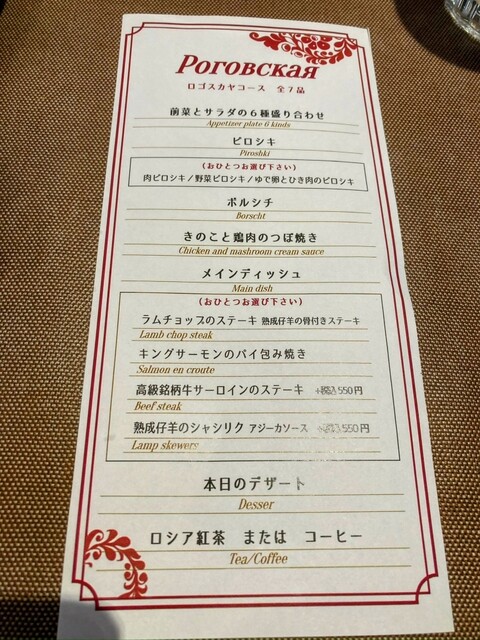 Роговская
ロゴスカヤコース 全7品
前菜とサラダの6種盛り合わせ
Appetizer plate 6 kinds
ピロシキ
Piroshki
(おひとつお選び下さい)
肉ピロシキ/野菜ピロシキ/ゆで卵とひき肉のピロシキ
ボルシチ
Borscht
きのこと鶏肉のつぼ焼き
Chicken and mashroom cream sauce
メインディッシュ
Main dish
(おひとつお選び下さい)
ラムチョップのステーキ 熟成仔羊の骨付きステーキ
Lamb chop steak
キングサーモンのパイ包み焼き
Salmon en croute
高級銘柄牛サーロインのステーキ +税込550円
Beef steak
熟成仔羊のシャシリク アジーカソース 550円
Lamp skewers
本日のデザート
Desser
ロシア紅茶 または コーヒー
Tea/Coffee